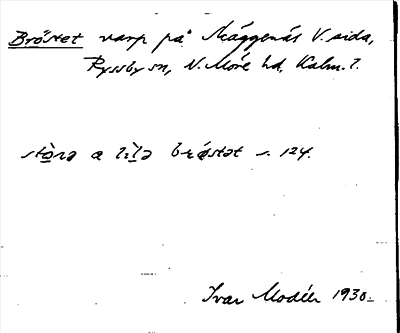 Bröstet varp på Skäggenäs V. sida,
Ryssby sn, N. Möre hd, Kalm. l.
stòra a lìla brǿstət s. 124.
Ivar Modéer 1930.